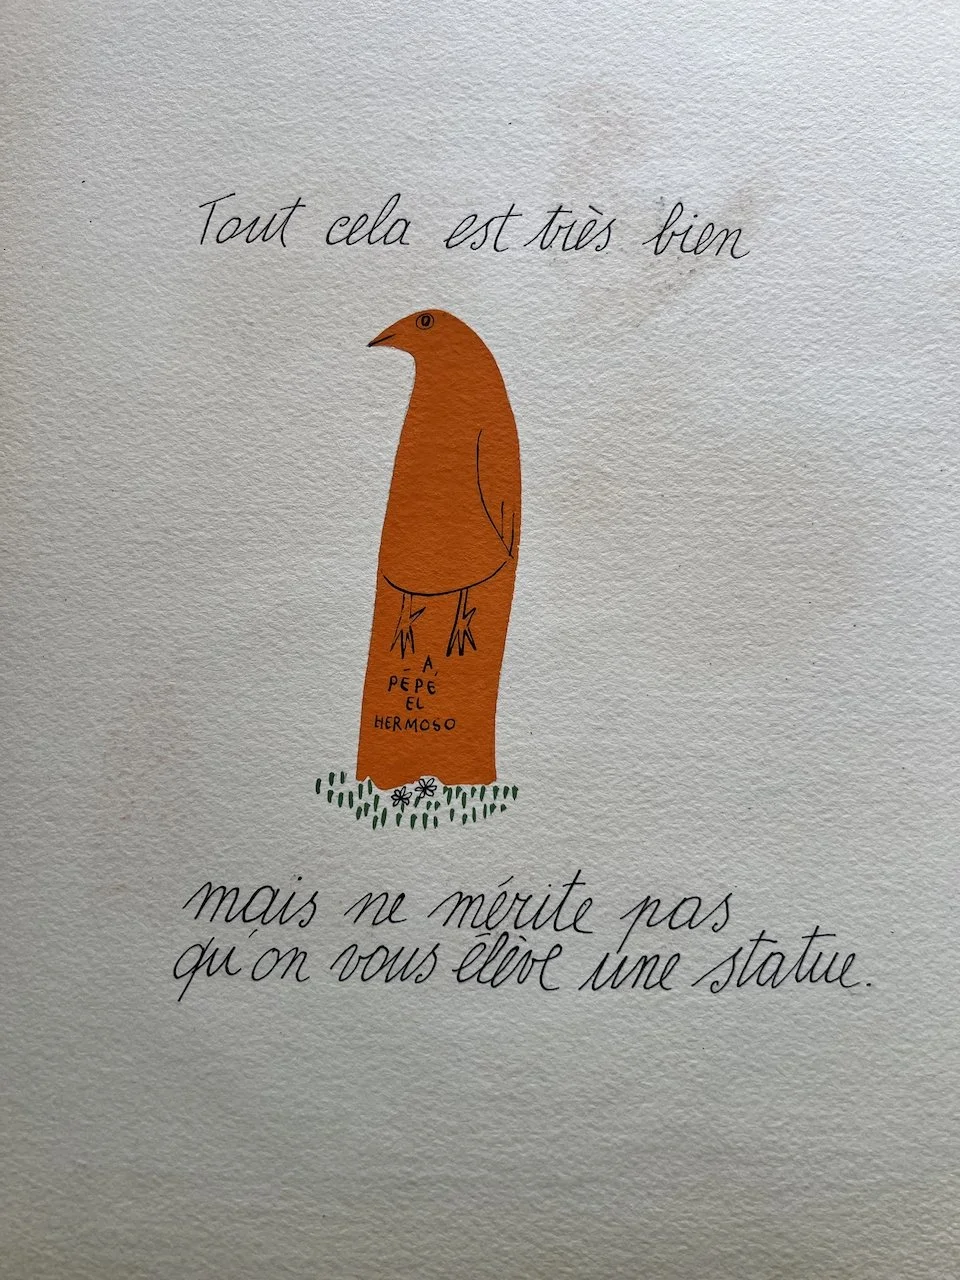 Tout cela est très bien
A
PÉPÉ
EL
HERMOSO
mais ne mérite pas
qu'on vous élève une statue.